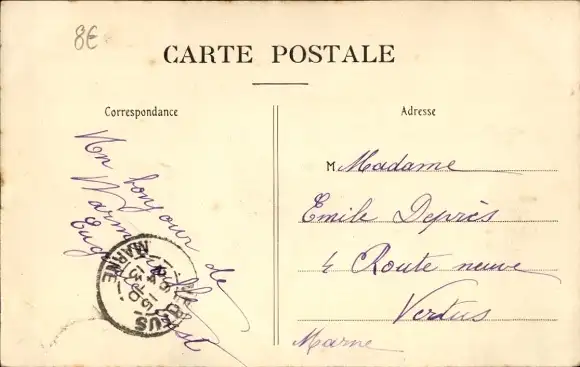 8€
CARTE POSTALE
Correspondance
Adresse
Un bonjour de
Eug
MARNE
M Madame
Emile Deprès
4 Route neuve
Vertus
Marne